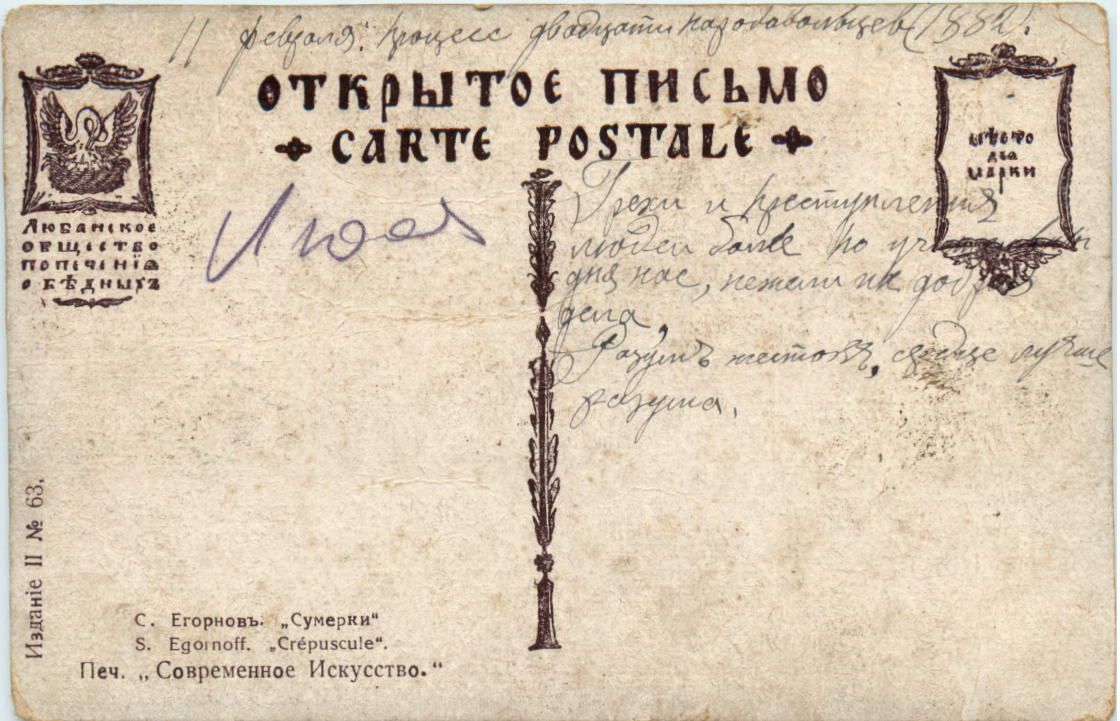 11 февраля. процесс двадцати народовольцев (1882).
ОТКРЫТОЕ ПИСЬМО
CARTE POSTALE
ЛЮБАНСКОЕ
ОБЩЕСТВО
ПОПЕЧЕНІЯ
О БѢДНЫХЪ
МѢСТО
ДЛЯ
МАРКИ
Люба
Грехи и преступления
людей более
для нас, нежели их добрые
дела,
Разумъ жестокъ, сердце лучше
разума.
Изданіе II № 63.
С. Егорновъ. „Сумерки“
S. Egornoff. „Crépuscule“.
Печ. „Современное Искусство.“